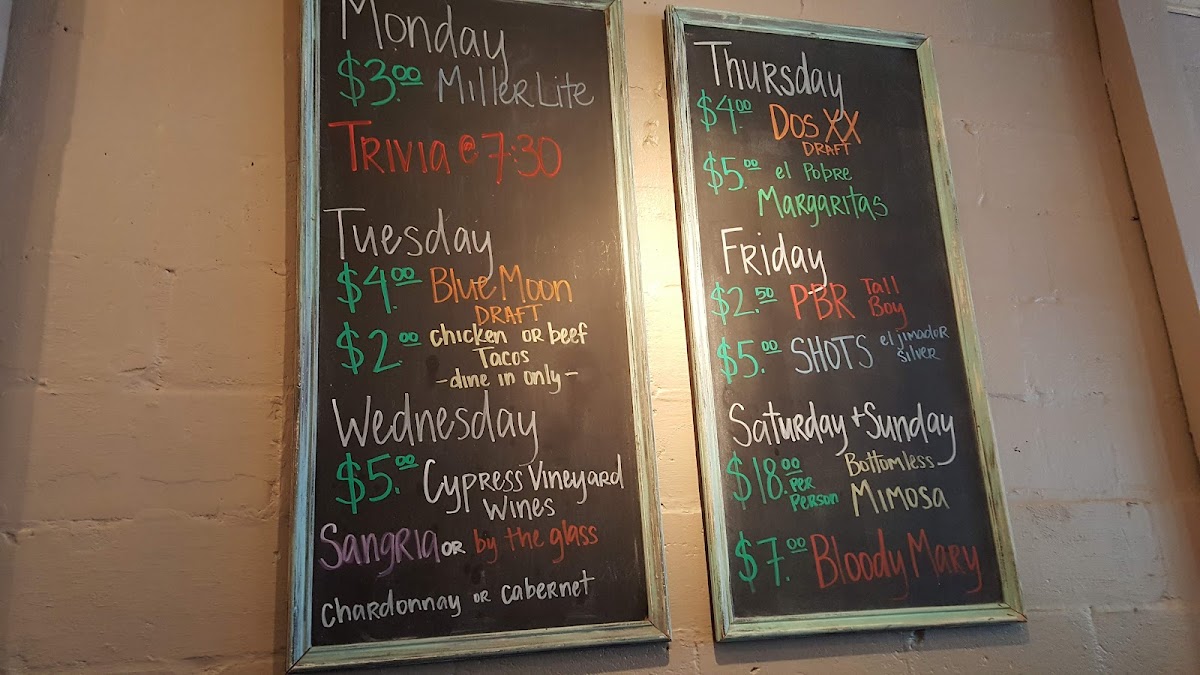 Monday
$3.00 Miller Lite
TRIVIA @ 7:30
Tuesday
$4.00 Blue Moon
DRAFT
$2.00 chicken or beef
Tacos
-dine in only-
Wednesday
$5.00 Cypress Vineyard
Wines
Sangria or by the glass
chardonnay or cabernet
Thursday
$4.00 Dos XX
DRAFT
$5.00 el Pobre
Margaritas
Friday
$2.50 PBR Tall
Boy
$5.00 SHOTS el jimador
silver
Saturday + Sunday
$18.00 Bottomless
Per
Person Mimosa
$7.00 Bloody Mary